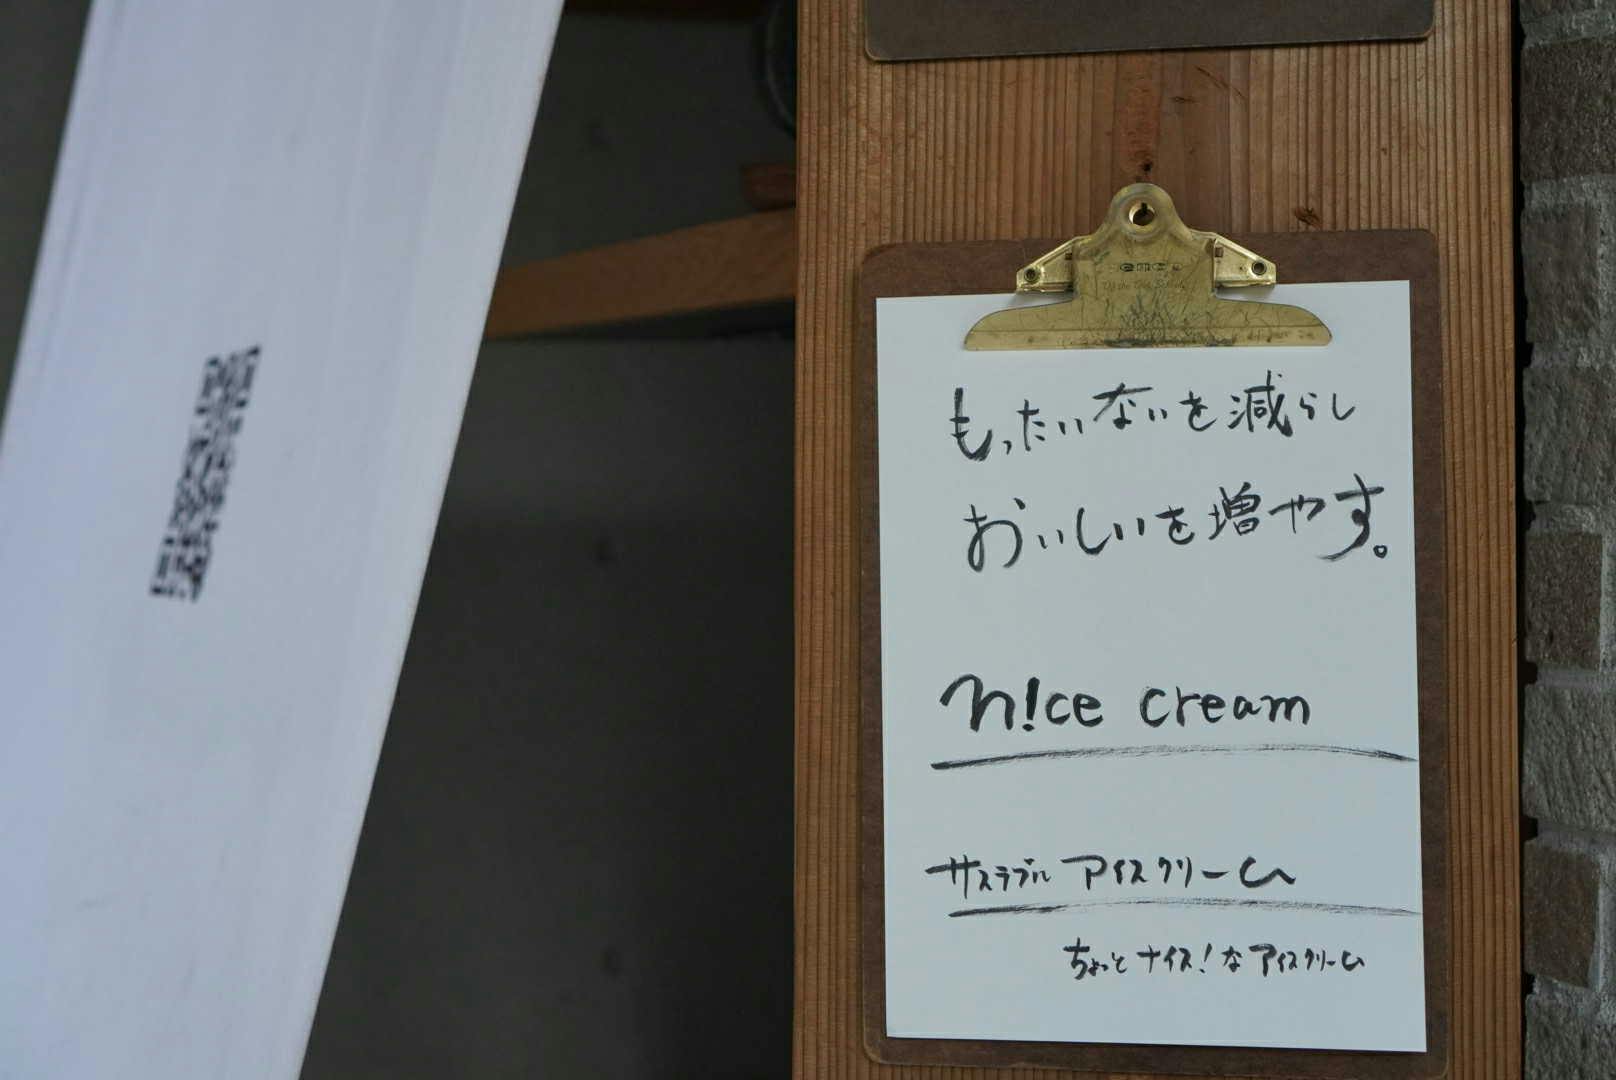 もったいないを減らし
おいしいを増やす。
n!ce cream
サスラブル アイスクリーム
ちょっとナイス!なアイスクリーム